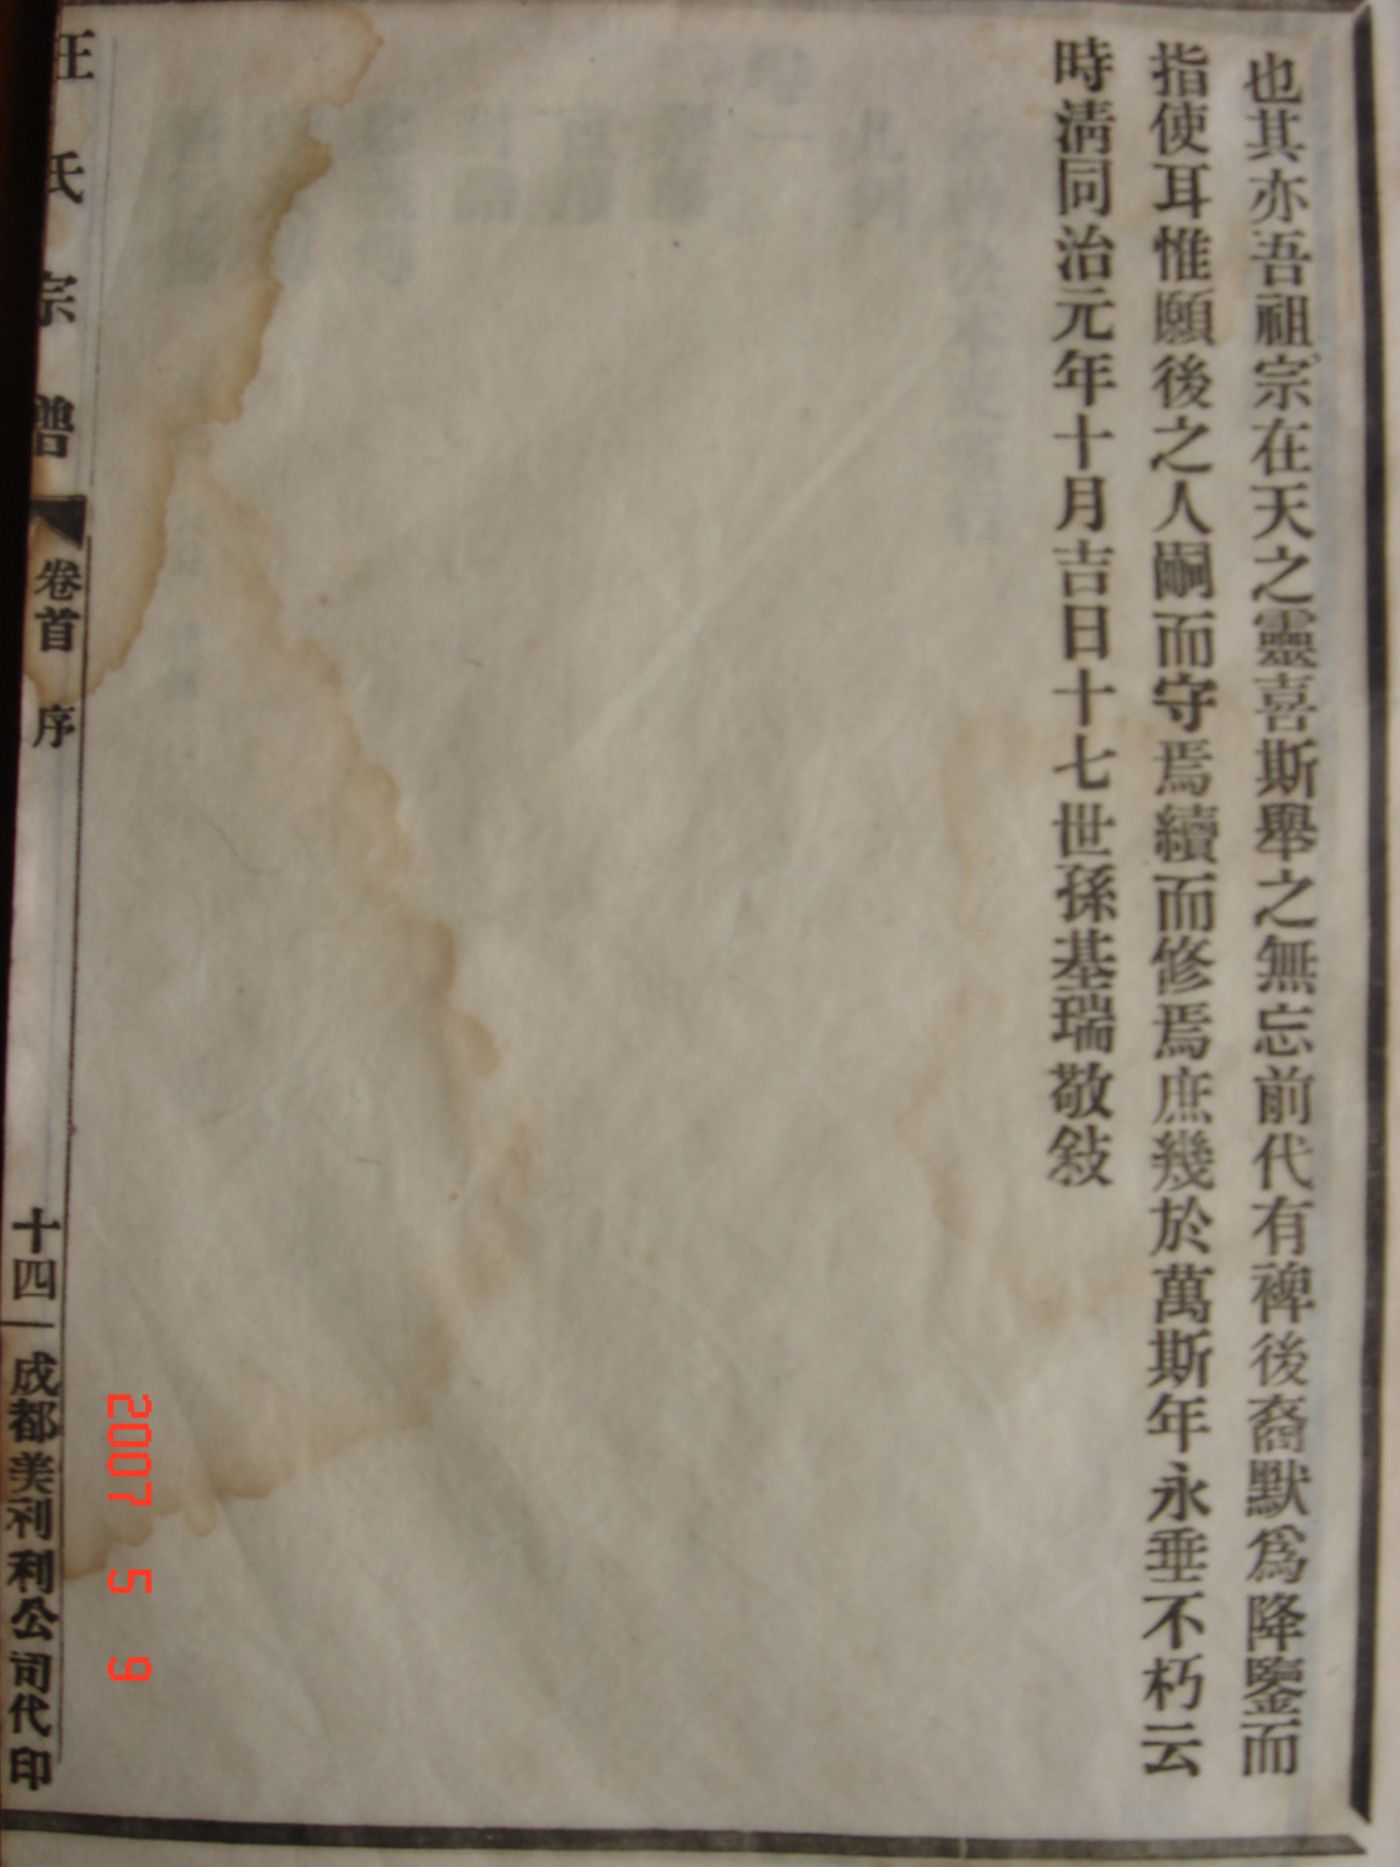 也其亦吾祖宗在天之靈喜斯舉之無忘前代有裨後裔默爲降鑒而
指使耳惟願後之人嗣而守焉續而修焉庶幾於萬斯年永垂不朽云
時淸同治元年十月吉日十七世孫基瑞敬敍
汪氏宗譜
卷首 序
十四
成都美利利公司代印
2007 5 9